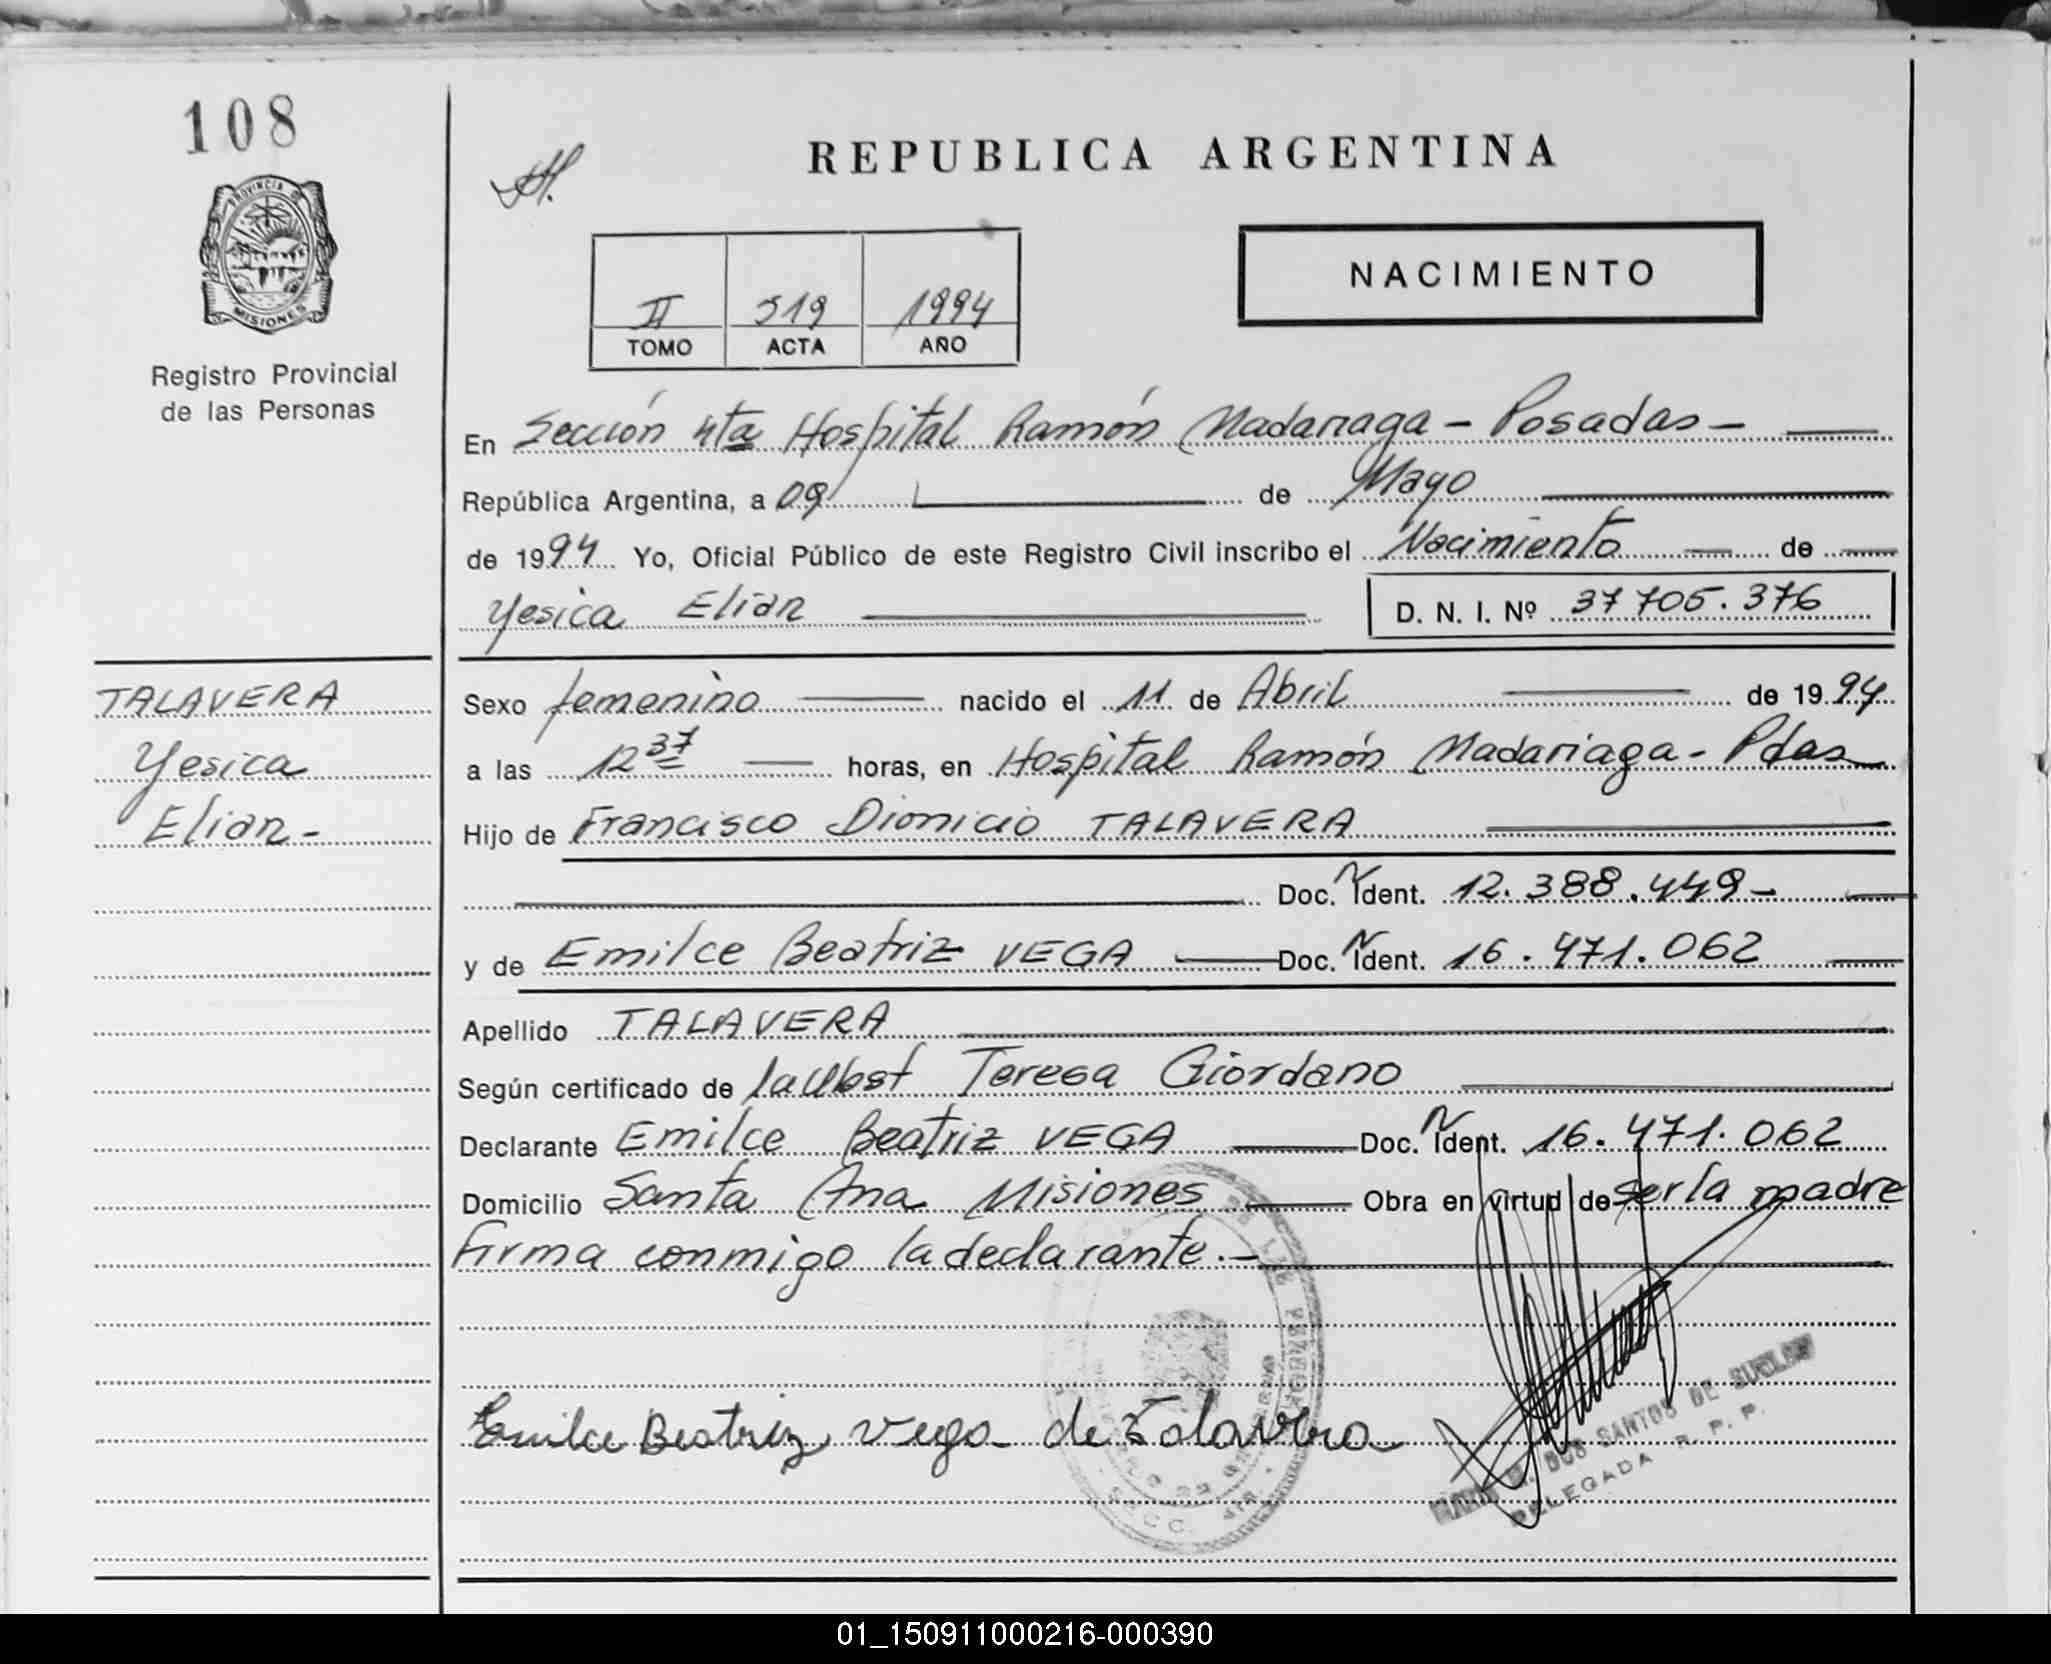 108
PROVINCIA DE
MISIONES
Registro Provincial
de las Personas
REPUBLICA ARGENTINA
NACIMIENTO
II 319 1994
TOMO ACTA AÑO
En Sección 4ta Hospital Ramón Madariaga - Posadas -
República Argentina, a 09 de Mayo
de 1994 Yo, Oficial Público de este Registro Civil inscribo el Nacimiento de
Yesica Elian D. N. I. Nº 37 705.376
TALAVERA
Yesica
Elian -
Sexo femenino nacido el 11 de Abril de 1994
a las 12 37 horas, en Hospital Ramón Madariaga - Pdas
Hijo de Francisco Dionicio TALAVERA
Doc. N Ident. 12.388.449 -
y de Emilce Beatriz VEGA Doc. N Ident. 16.471.062
Apellido TALAVERA
Según certificado de Teresa Giordano
Declarante Emilce Beatriz VEGA Doc. N Ident. 16.471.062
Domicilio Santa Ana Misiones Obra en virtud de ser la madre
firma conmigo la declarante. -
Emilce Beatriz Vega de Talavera
DOS SANTOS DE
DELEGADA R. P. P.
DE LAS PERSONAS
SECC. 4TA.
01_150911000216-000390